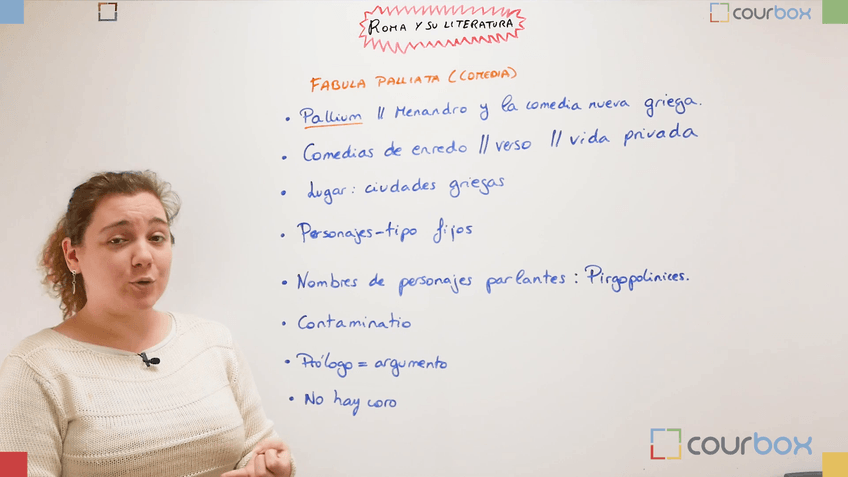 courbox
ROMA Y SU LITERATURA
FABULA PALLIATA (COMEDIA)
• Pallium // Menandro y la comedia nueva griega.
• Comedias de enredo // verso // vida privada
• Lugar: ciudades griegas
• Personajes-tipo fijos
• Nombres de personajes parlantes: Pirgopolinices.
• Contaminatio
• Prólogo = argumento
• No hay coro
courbox